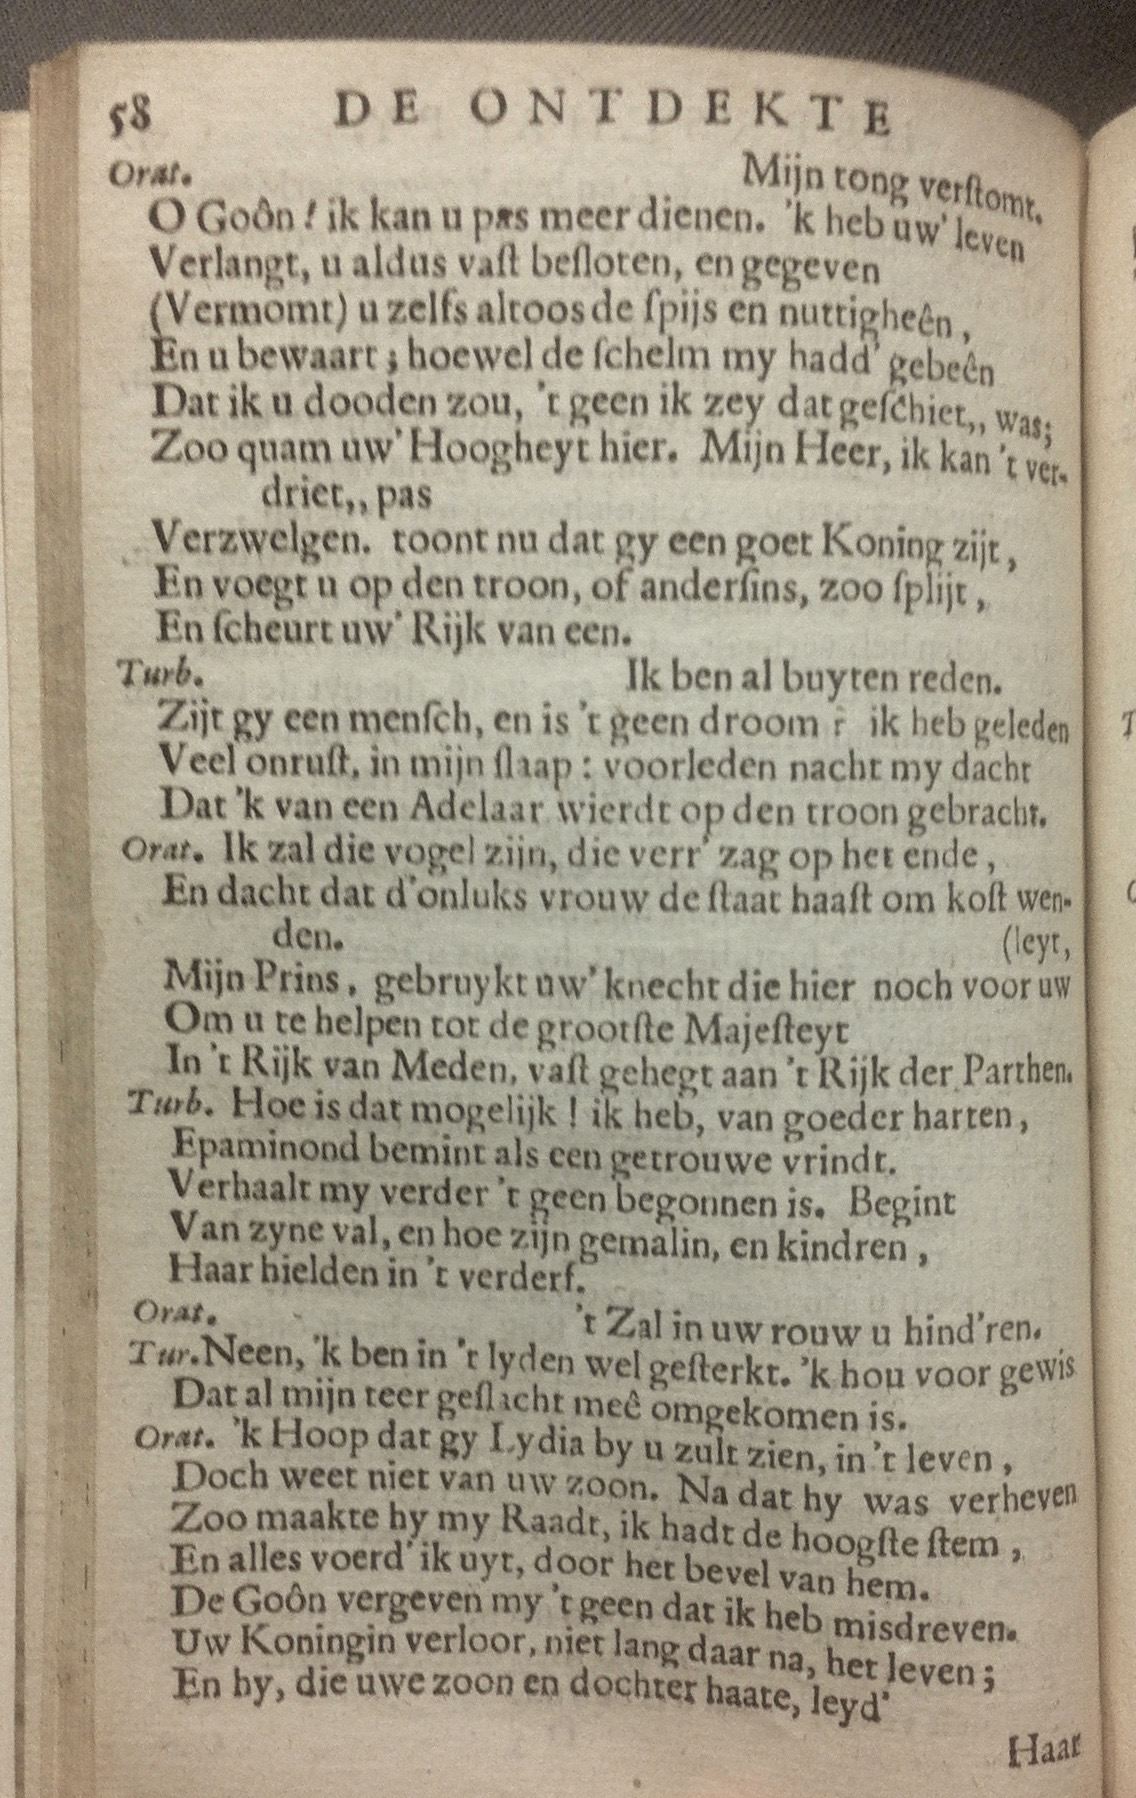 58 DE ONTDEKTE
Orat. Mijn tong verſtomt.
O Goôn! ik kan u pas meer dienen. 'k heb uw' leven
Verlangt, u aldus vaſt beſloten, en gegeven
(Vermomt) u zelfs altoos de ſpijs en nuttigheên,
En u bewaart; hoewel de ſchelm my hadd' gebeên
Dat ik u dooden zou, 't geen ik zey dat geſchiet,, was;
Zoo quam uw' Hoogheyt hier. Mijn Heer, ik kan 't ver-
driet,, pas
Verzwelgen. toont nu dat gy een goet Koning zijt,
En voegt u op den troon, of anderſins, zoo ſplijt,
En ſcheurt uw' Rijk van een.
Turb. Ik ben al buyten reden.
Zijt gy een menſch, en is 't geen droom? ik heb geleden
Veel onruſt, in mijn ſlaap: voorleden nacht my dacht
Dat 'k van een Adelaar wierdt op den troon gebracht.
Orat. Ik zal die vogel zijn, die verr' zag op het ende,
En dacht dat d'onluks vrouw de ſtaat haaſt om koſt wen-
den. (leyt,
Mijn Prins, gebruykt uw' knecht die hier noch voor uw
Om u te helpen tot de grootſte Majeſteyt
In 't Rijk van Meden, vaſt gehegt aan 't Rijk der Parthen.
Turb. Hoe is dat mogelijk! ik heb, van goeder harten,
Epaminond bemint als een getrouwe vrindt.
Verhaalt my verder 't geen begonnen is. Begint
Van zyne val, en hoe zijn gemalin, en kindren,
Haar hielden in 't verderf.
Orat. 't Zal in uw rouw u hind'ren.
Tur. Neen, 'k ben in 't lyden wel geſterkt. 'k hou voor gewis
Dat al mijn teer geſlacht meê omgekomen is.
Orat. 'k Hoop dat gy Lydia by u zult zien, in 't leven,
Doch weet niet van uw zoon. Na dat hy was verheven
Zoo maakte hy my Raadt, ik hadt de hoogſte ſtem,
En alles voerd' ik uyt, door het bevel van hem.
De Goôn vergeven my 't geen dat ik heb misdreven.
Uw Koningin verloor, niet lang daar na, het leven;
En hy, die uwe zoon en dochter haate, leyd'
Haar